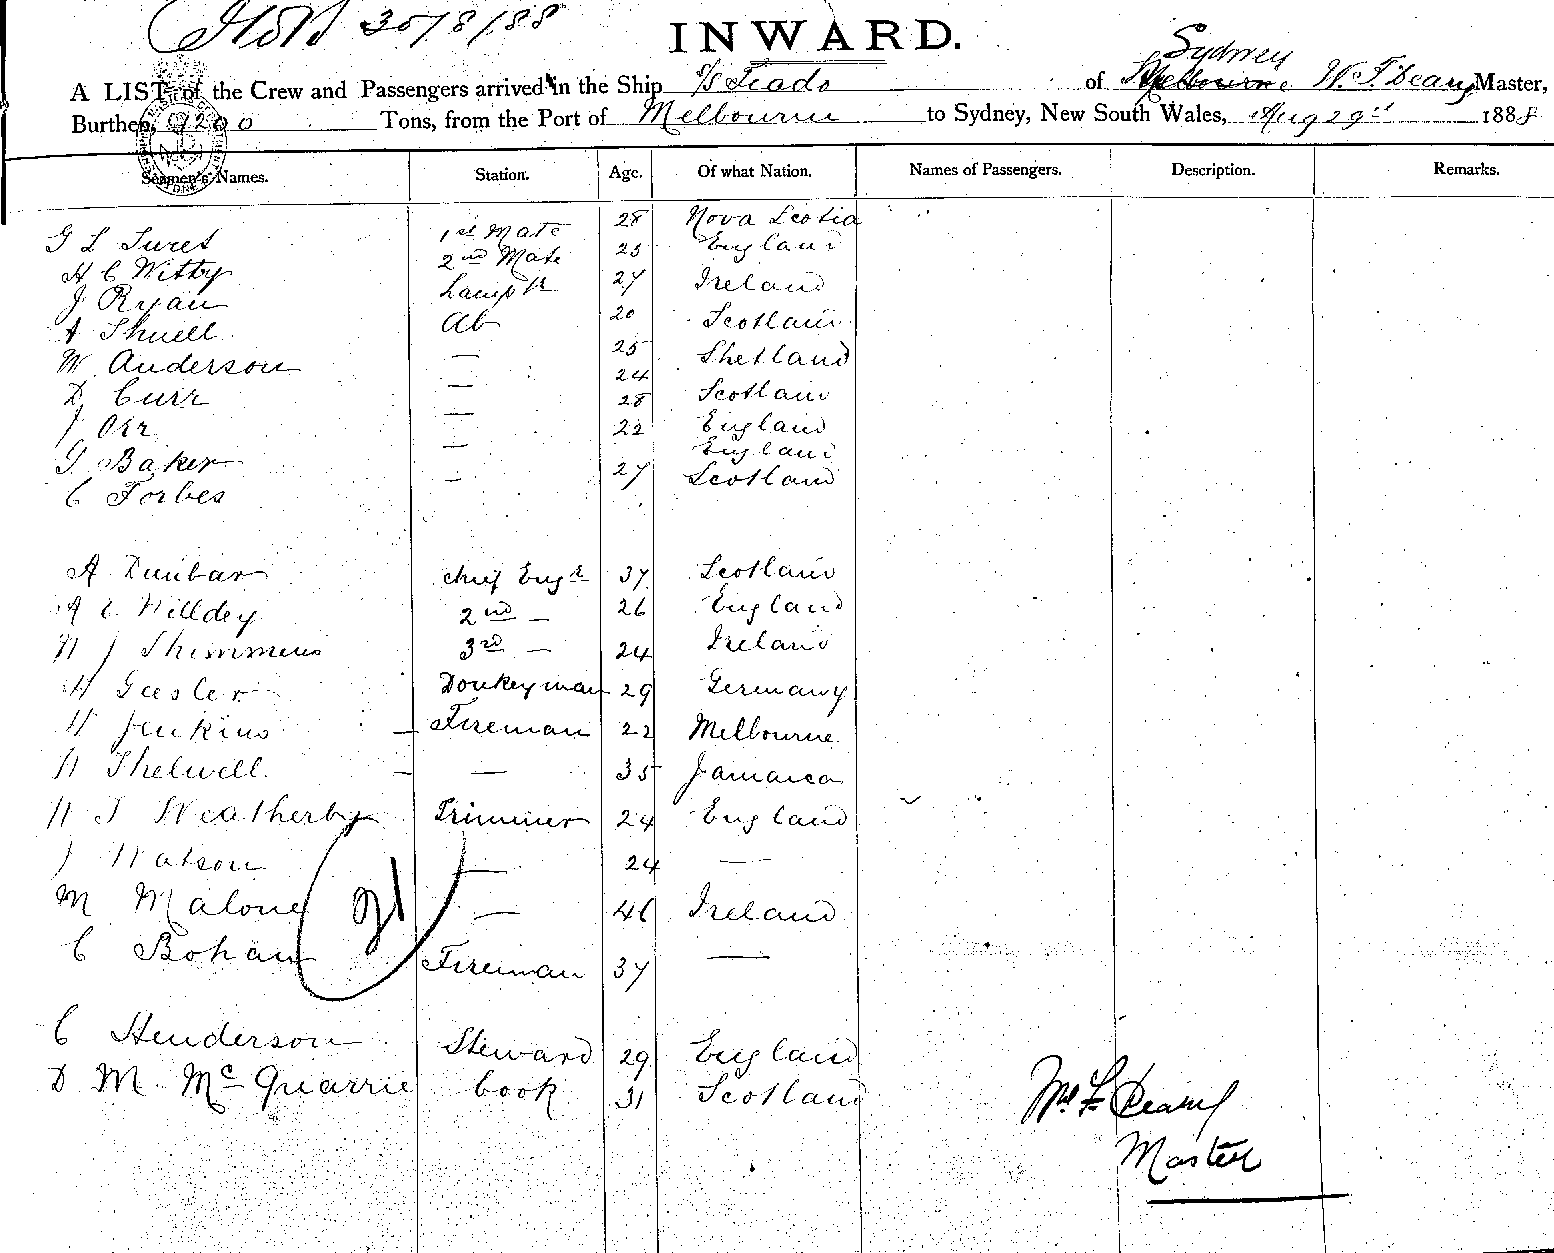 30/8/88
INWARD.
Sydney
A LIST of the Crew and Passengers arrived in the Ship s/s Tiado of Melbourne W. F. Deary Master,
Burthen, Tons, from the Port of Melbourne to Sydney, New South Wales, Aug 29th 1888
Seamen's Names. Station. Age. Of what Nation. Names of Passengers. Description. Remarks.
G L Suret 1st Mate 28 Nova Scotia
H C Witty 2nd Mate 25 England
J Ryan Lampr 27 Ireland
A Shuell Ab 20 Scotland
W Anderson — 25 Shetland
D Curr — 24 Scotland
J Orr — 28 England
G Baker — 22 England
C Forbes — 27 Scotland
A Dunbar Chief Engr 37 Scotland
A E Willdey 2nd — 26 England
W J Shimmins 3rd — 24 Ireland
H Gesler Donkeyman 29 Germany
H Jenkins — Fireman 22 Melbourne
A Thelwell — — 35 Jamaica
W T Weatherby Trimmer 24 England
J Watson — 24 —
M Malone — 46 Ireland
21
C Bohan Fireman 37 —
C Henderson Steward 29 England
D M McQuarrie Cook 31 Scotland
Wm F Deary
Master